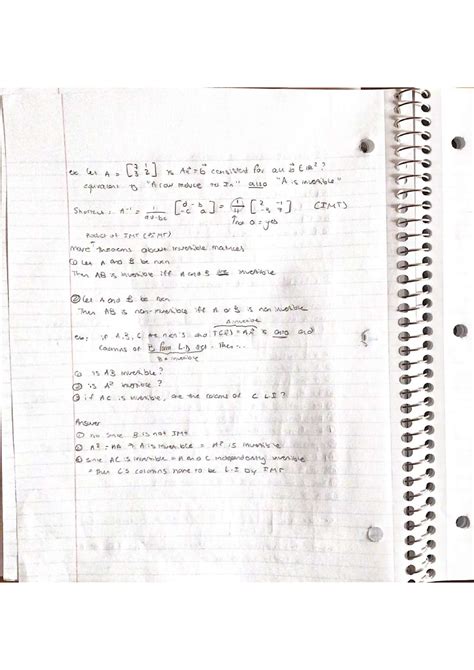 ex: let A = [7 1; 3 2] is Ax⃗ = b⃗ consistent for all b⃗ ∈ ℝ² ?
equivalent to "A row reduce to In" also "A is invertible"
Shortcut = A⁻¹ = 1/(ad-bc) [d -b; -c a] = 1/11 [2 -1; -3 7] (IMT)
≠ 0 = yes
of IMT
more theorems about invertible matrices
① let A and B be nxn
Then AB is invertible iff A and B are invertible
② let A and B be nxn
Then AB is non-invertible iff A or B is non invertible
A invertible
ex: if A, B, C are nxn's and = ℝⁿ is and
columns of B form L.D set. Then...
B
① is AB invertible?
② is A² invertible?
③ if AC is invertible, are the columns of C L.I?
Answer
① no since B is not IMT
② A² = AA → A is invertible = A² is invertible
③ since AC is invertible = A and C independently invertible
then C's columns have to be L.I by IMT